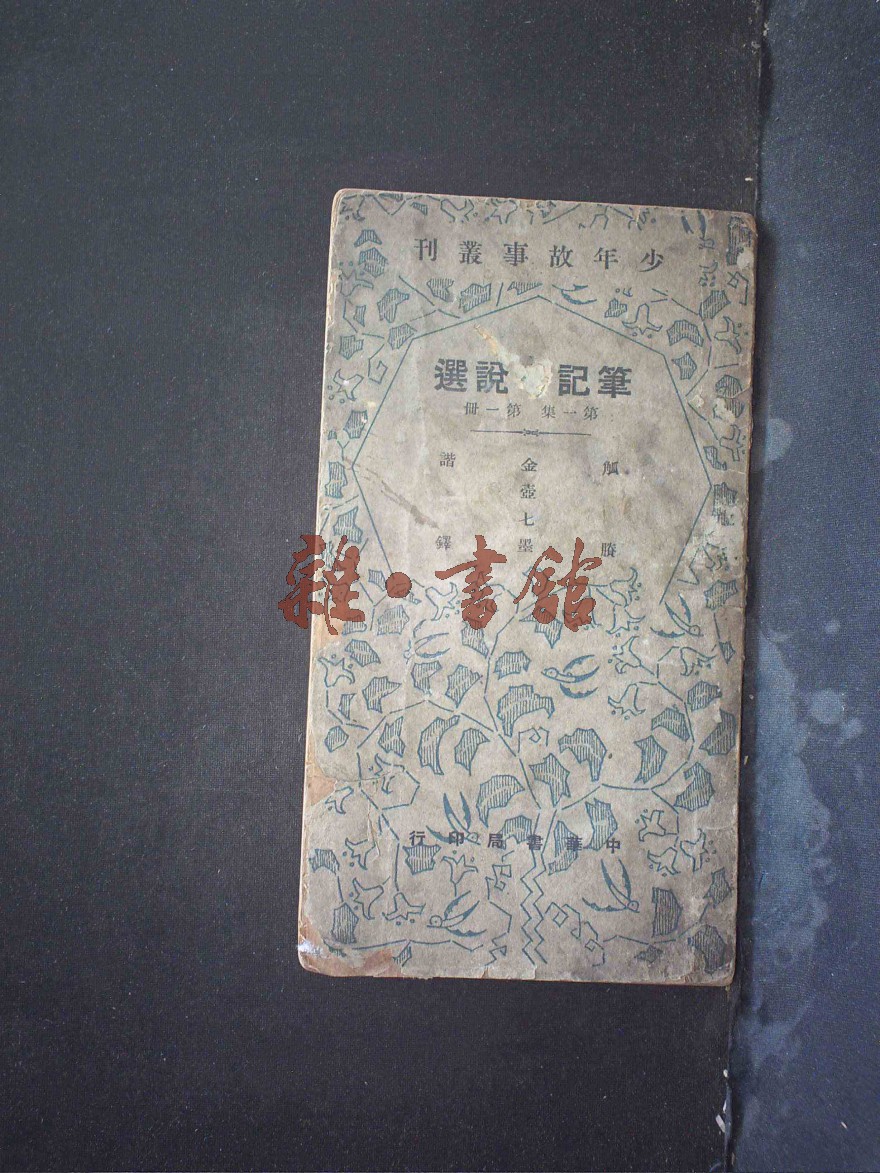 少年故事叢刊
筆記說選
第一集 第一冊
觚賸
金壺七墨
諧鐸
雜·書館
中華書局印行